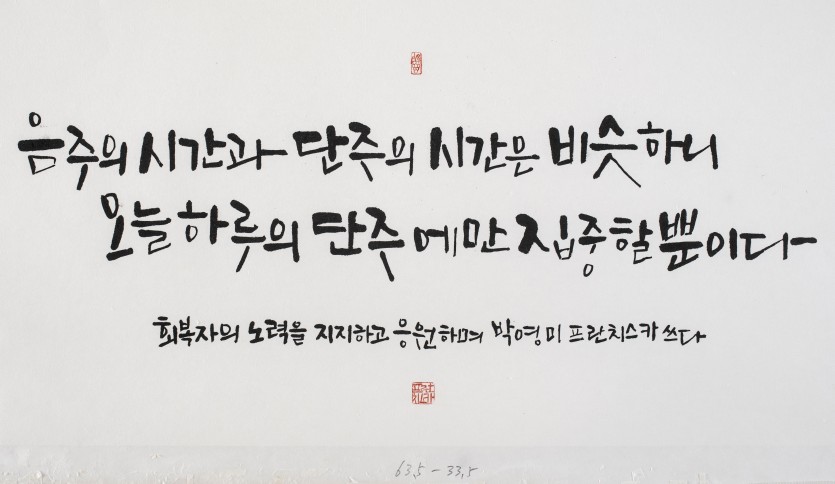 음주의 시간과 단주의 시간은 비슷하니
오늘 하루의 단주에만 집중할 뿐이다
회복자의 노력을 지지하고 응원하며 박영미 프란치스카 쓰다
63,5 - 33,5